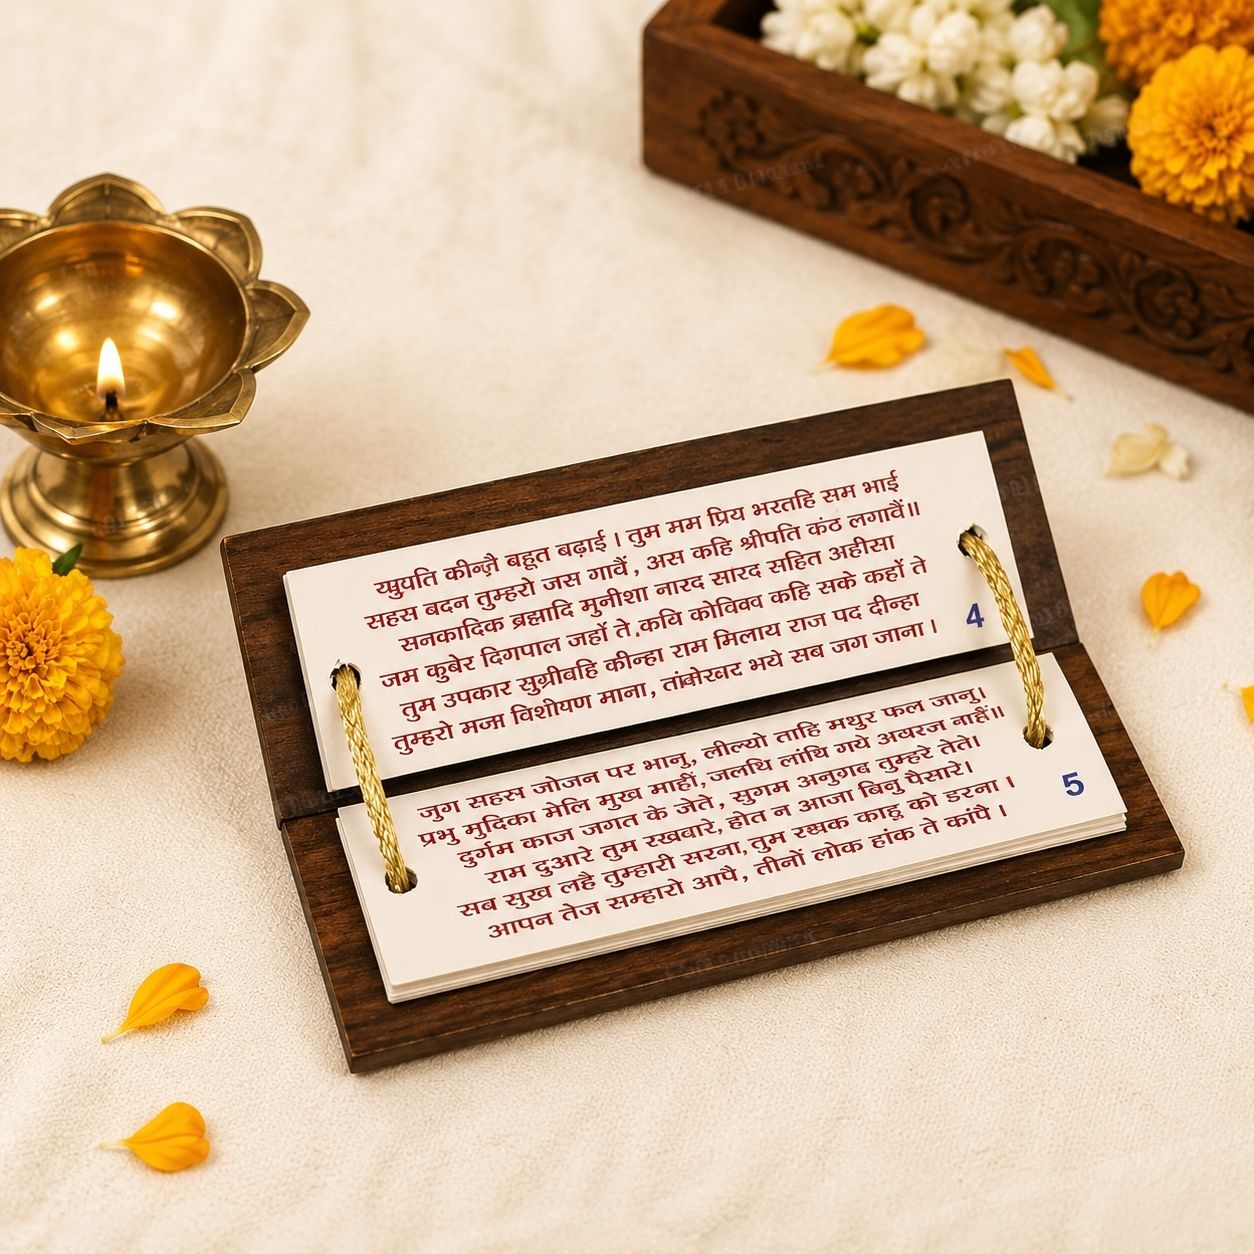 रघुपति कीन्ही बहूत बढ़ाई । तुम मम प्रिय भरतहि सम भाई
सहस बदन तुम्हरो जस गावैं , अस कहि श्रीपति कंठ लगावैं॥
सनकादिक ब्रह्मादि मुनीशा नारद सारद सहित अहीसा
जम कुबेर दिगपाल जहाँ ते , कवि कोविवव कहि सके कहाँ ते
तुम उपकार सुग्रीवहि कीन्हा राम मिलाय राज पद दीन्हा
तुम्हरो विशीयण माना , भये सब जग जाना ।
4
जुग सहस जोजन पर भानु, लील्यो ताहि मथुर फल जानु।
प्रभु मुदिका मेलि मुख माहीं, जलधि लांधि गये अयरज नाहीं॥
दुर्गम काज जगत के जेते , सुगम अनुगब तुम्हरे तेते।
राम दुआरे तुम रखवारे, होत न आजा बिनु पैसारे।
सब सुख लहै तुम्हारी सरना, तुम रक्षक काहु को डरना ।
आपन तेज सम्हारो आपै , तीनों लोक हांक ते कांपै ।
5